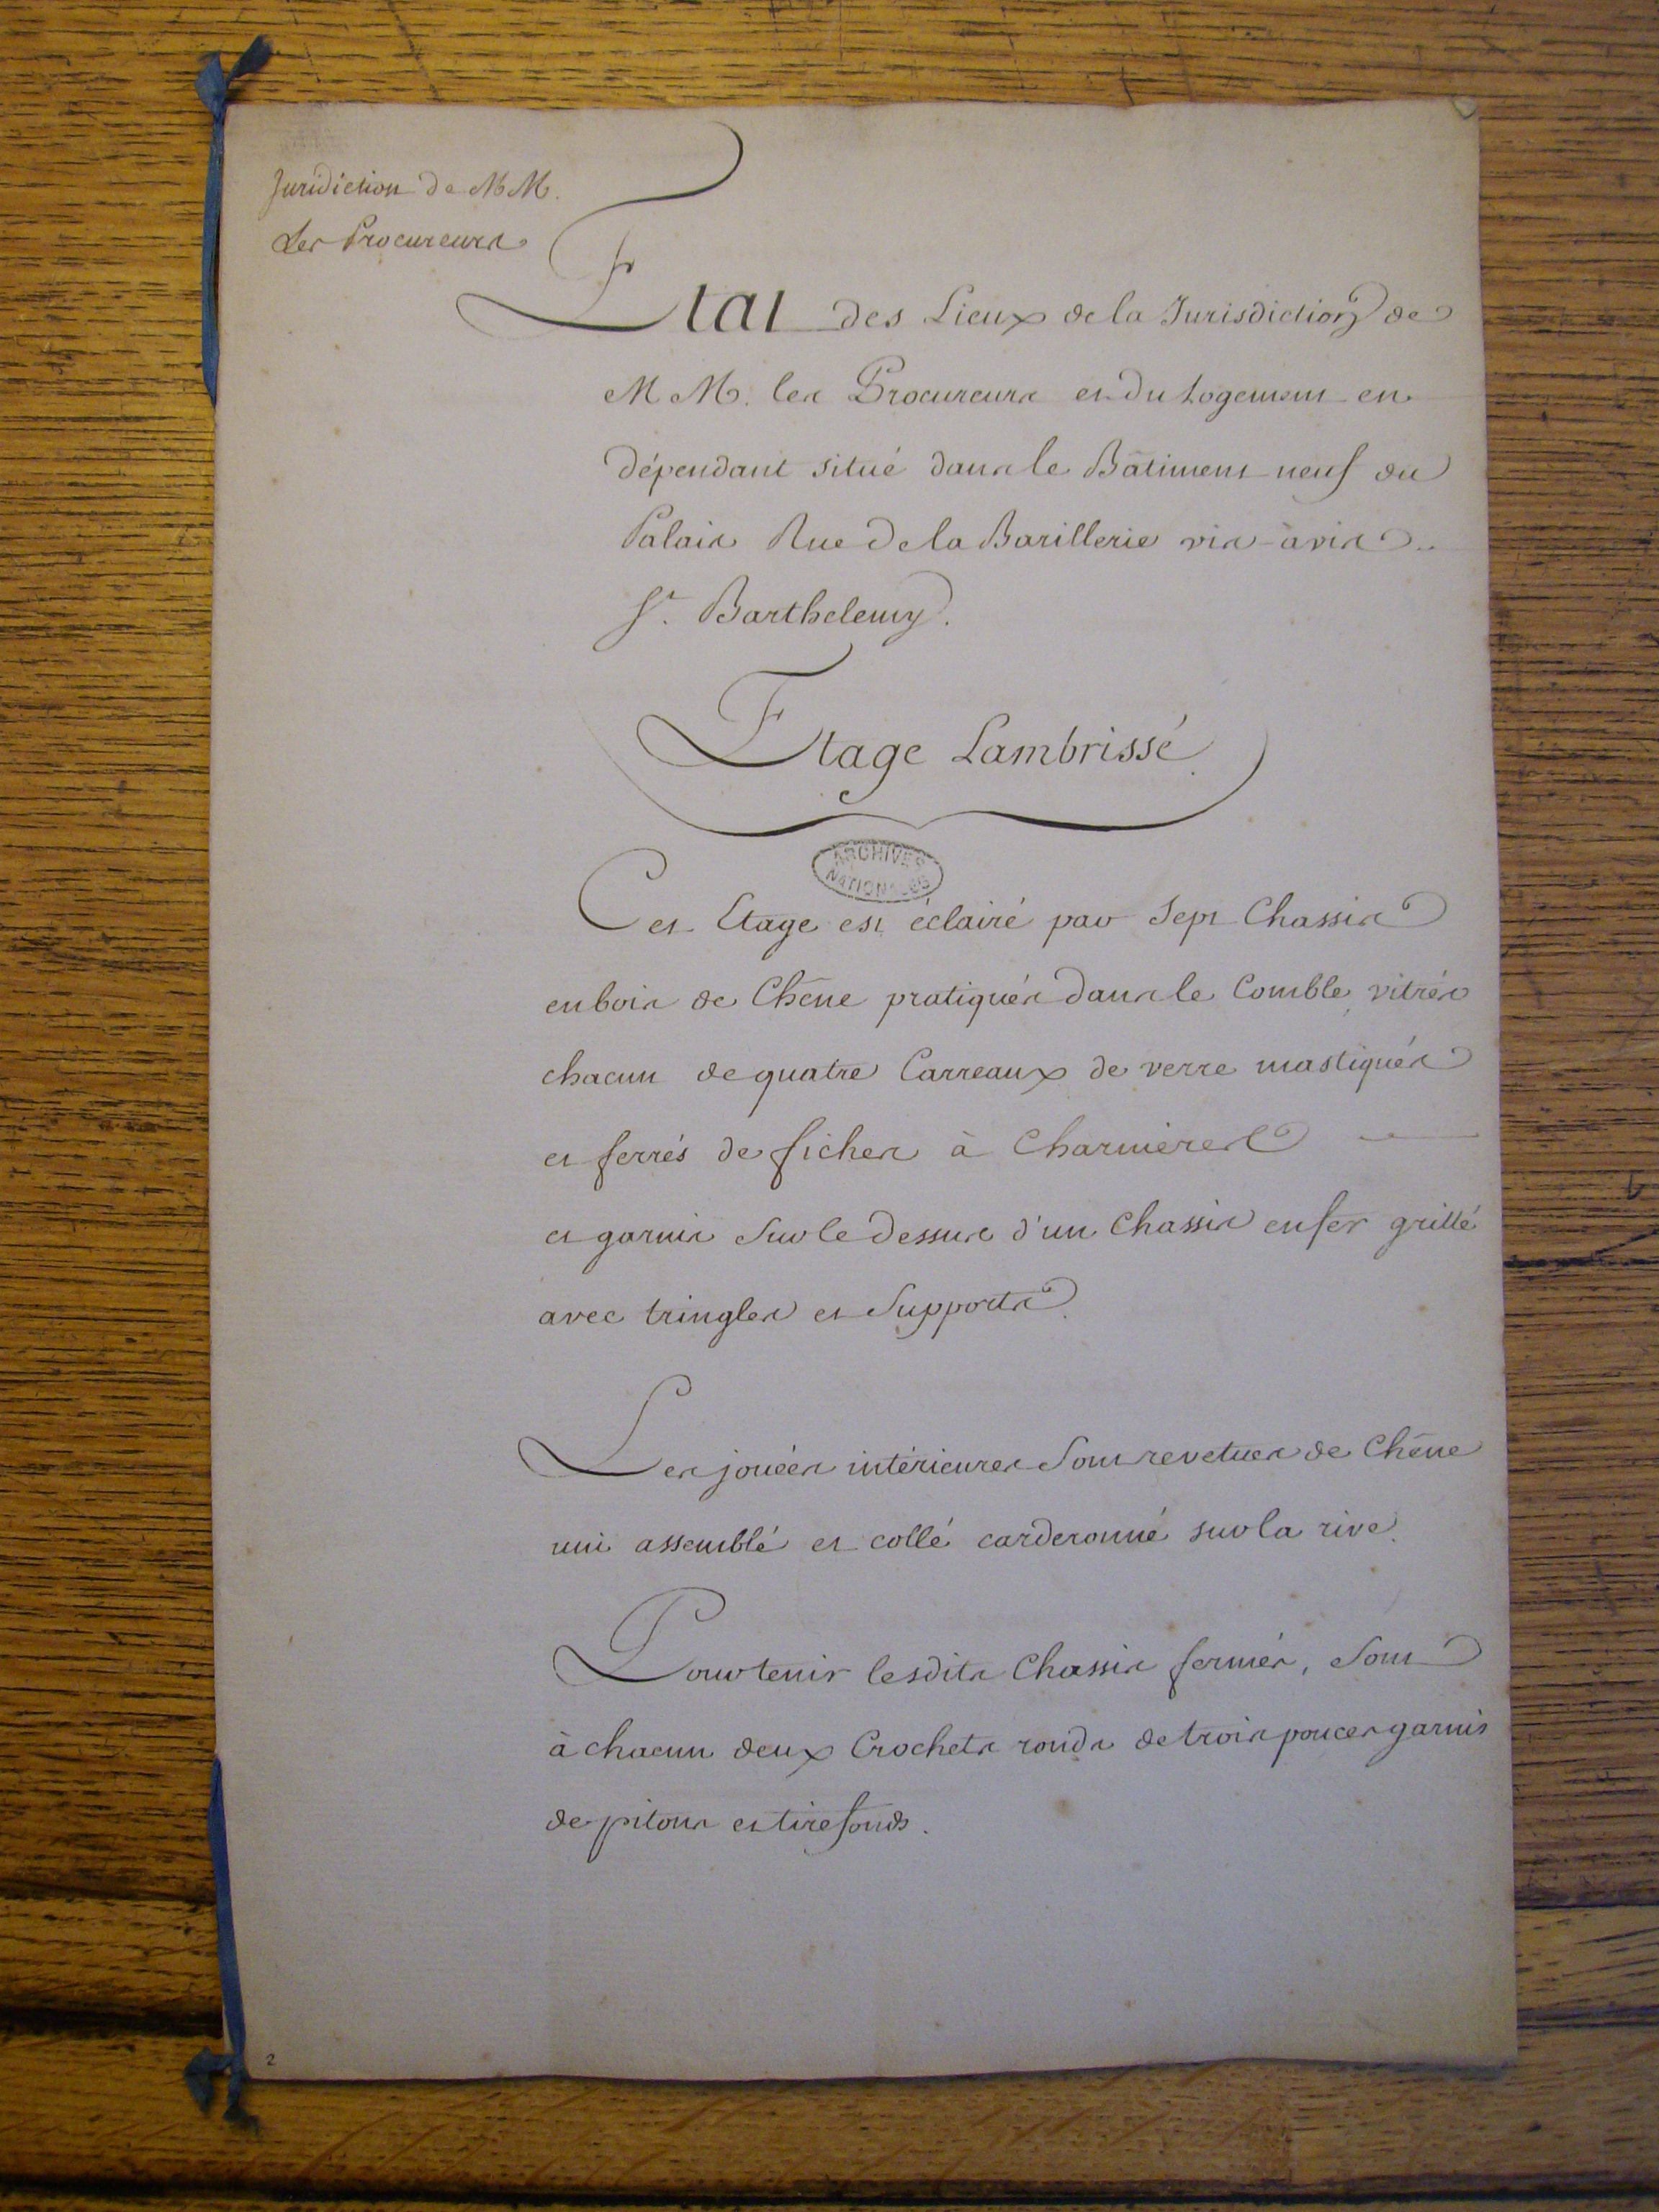 Juridiction de MM.
Les Procureurs
Etat des Lieux de la Jurisdiction de
MM. les Procureurs et du Logement en
dépendant situé dans le Bâtiment neuf du
Palais Rue de la Barillerie vis-à vis
St. Barthelemy.
Etage Lambrissé.
ARCHIVES
NATIONALES
Cet Etage est éclairé par Sept Chassis
en bois de Chêne pratiqués dans le Comble, vitrés
chacun de quatre Carreaux de verre mastiqués
et ferrés de fiches à Charnieres
et garnis Sur le Dessus d'un Chassis en fer grillé
avec tringles et Supports.
Les jouées intérieures Sont revetues de Chêne
uni assemblé et collé carderonné sur la rive.
Pour tenir lesdits Chassis fermés, Sont
à chacun deux Crochets ronds de trois pouces garnis
de pitons et tirefonds.
2